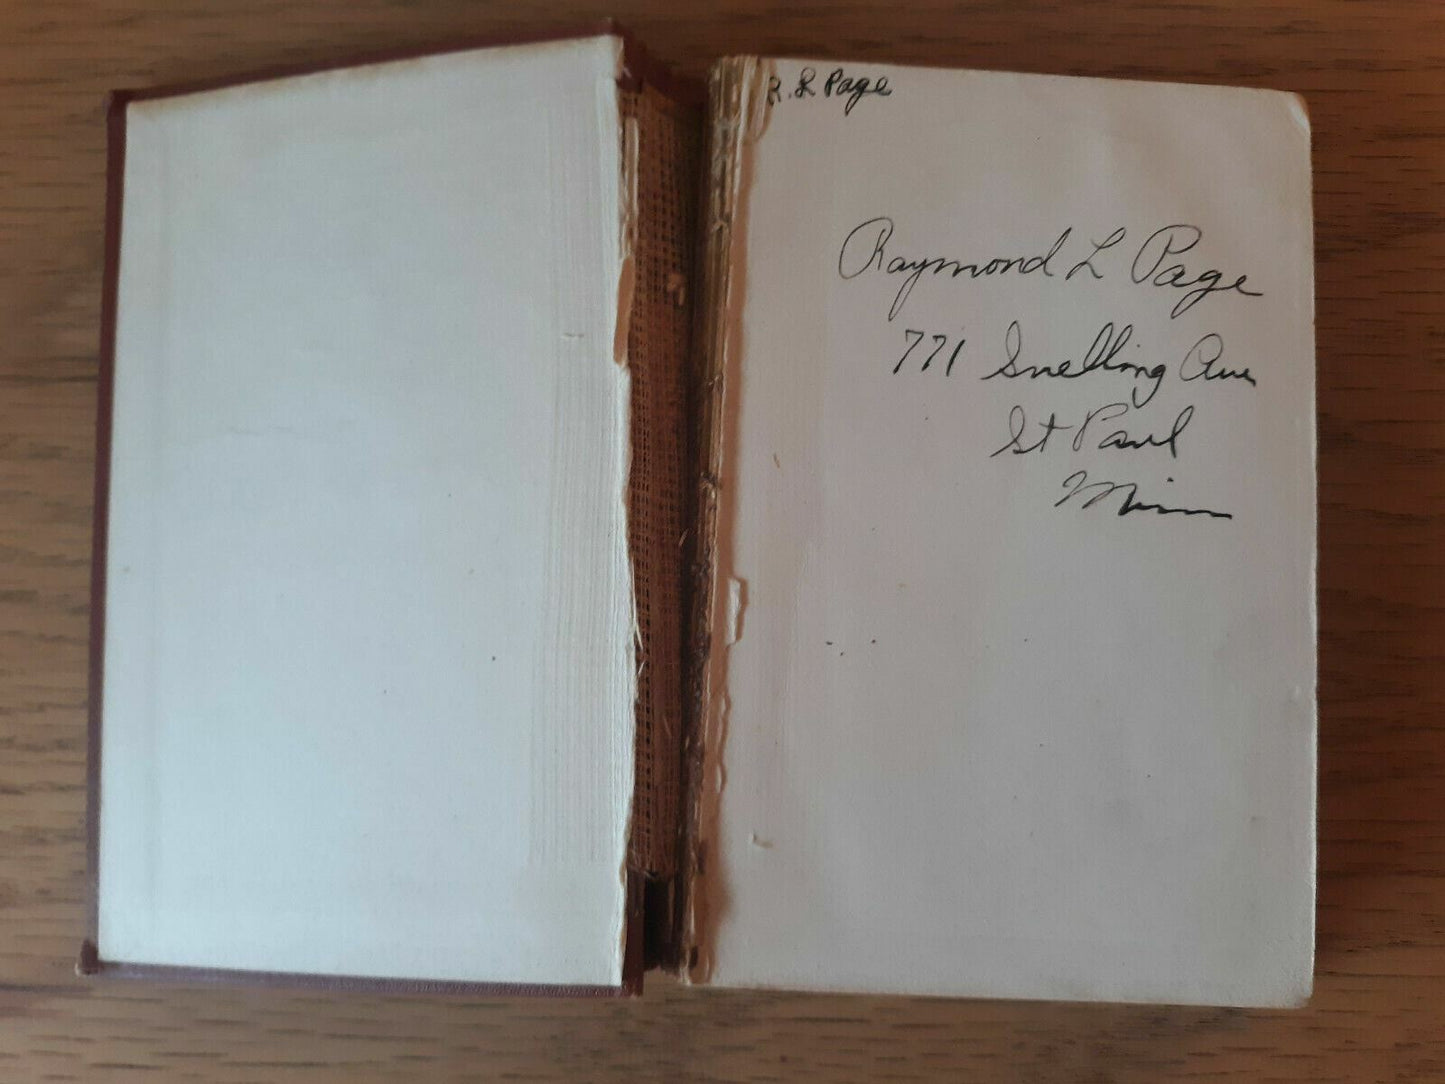 R. L Page
Raymond L Page
771 Snelling Ave
St Paul
Minn